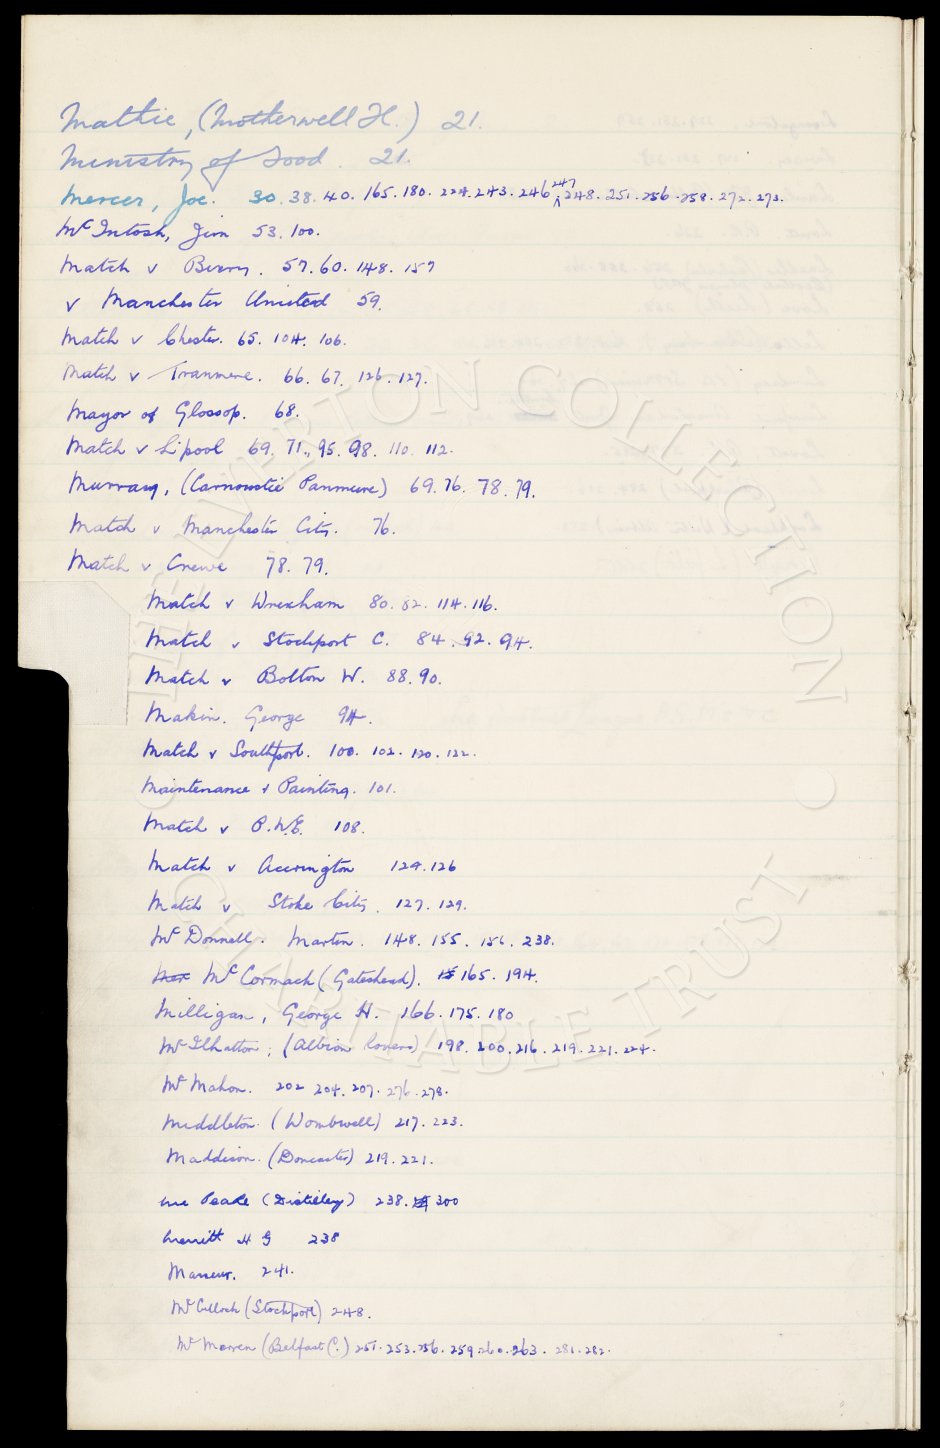 Mathie, (Motherwell H.) 21.
Ministry of Food. 21.
Mercer, Joe. 30. 38. 40. 165. 180. 224. 243. 246. 247 248. 251. 256. 258. 272. 273.
McIntosh, Jim 53. 100.
Match v Bury. 57. 60. 148. 157
v Manchester United 59.
Match v Chester. 65. 104. 106.
Match v Tranmere. 66. 67. 126. 127.
Mayor of Glossop. 68.
Match v L'pool 69. 71. 95. 98. 110. 112.
Murray, (Carnoustie Panmure) 69. 76. 78. 79.
Match v Manchester City. 76.
Match v Crewe 78. 79.
Match v Wrexham 80. 82. 114. 116.
Match v Stockport C. 84. 92. 94.
Match v Bolton W. 88. 90.
Makin. George 94.
Match v Southport. 100. 102. 120. 122.
Maintenance & Painting. 101.
Match v P.N.E. 108.
Match v Accrington 124. 126
Match v Stoke City. 127. 129.
McDonnell. Martin. 148. 155. 156. 238.
Mer McCormack (Gateshead). 15 165. 194.
Milligan, George H. 166. 175. 180
McIlhatton, (Albion Rovers) 198. 200. 216. 219. 221. 224.
McMahon. 202 204. 207. 276. 278.
Middleton. (Wombwell) 217. 223.
Maddison. (Doncaster) 219. 221.
Mc Peake (Distillery) 238. 300
Merritt H G 238
Masseur. 241.
McCulloch (Stockport) 248.
McMorren (Belfast C.) 251. 253. 256. 259. 260. 263. 281. 282.
THE EVERTON COLLECTION
CHARITABLE TRUST